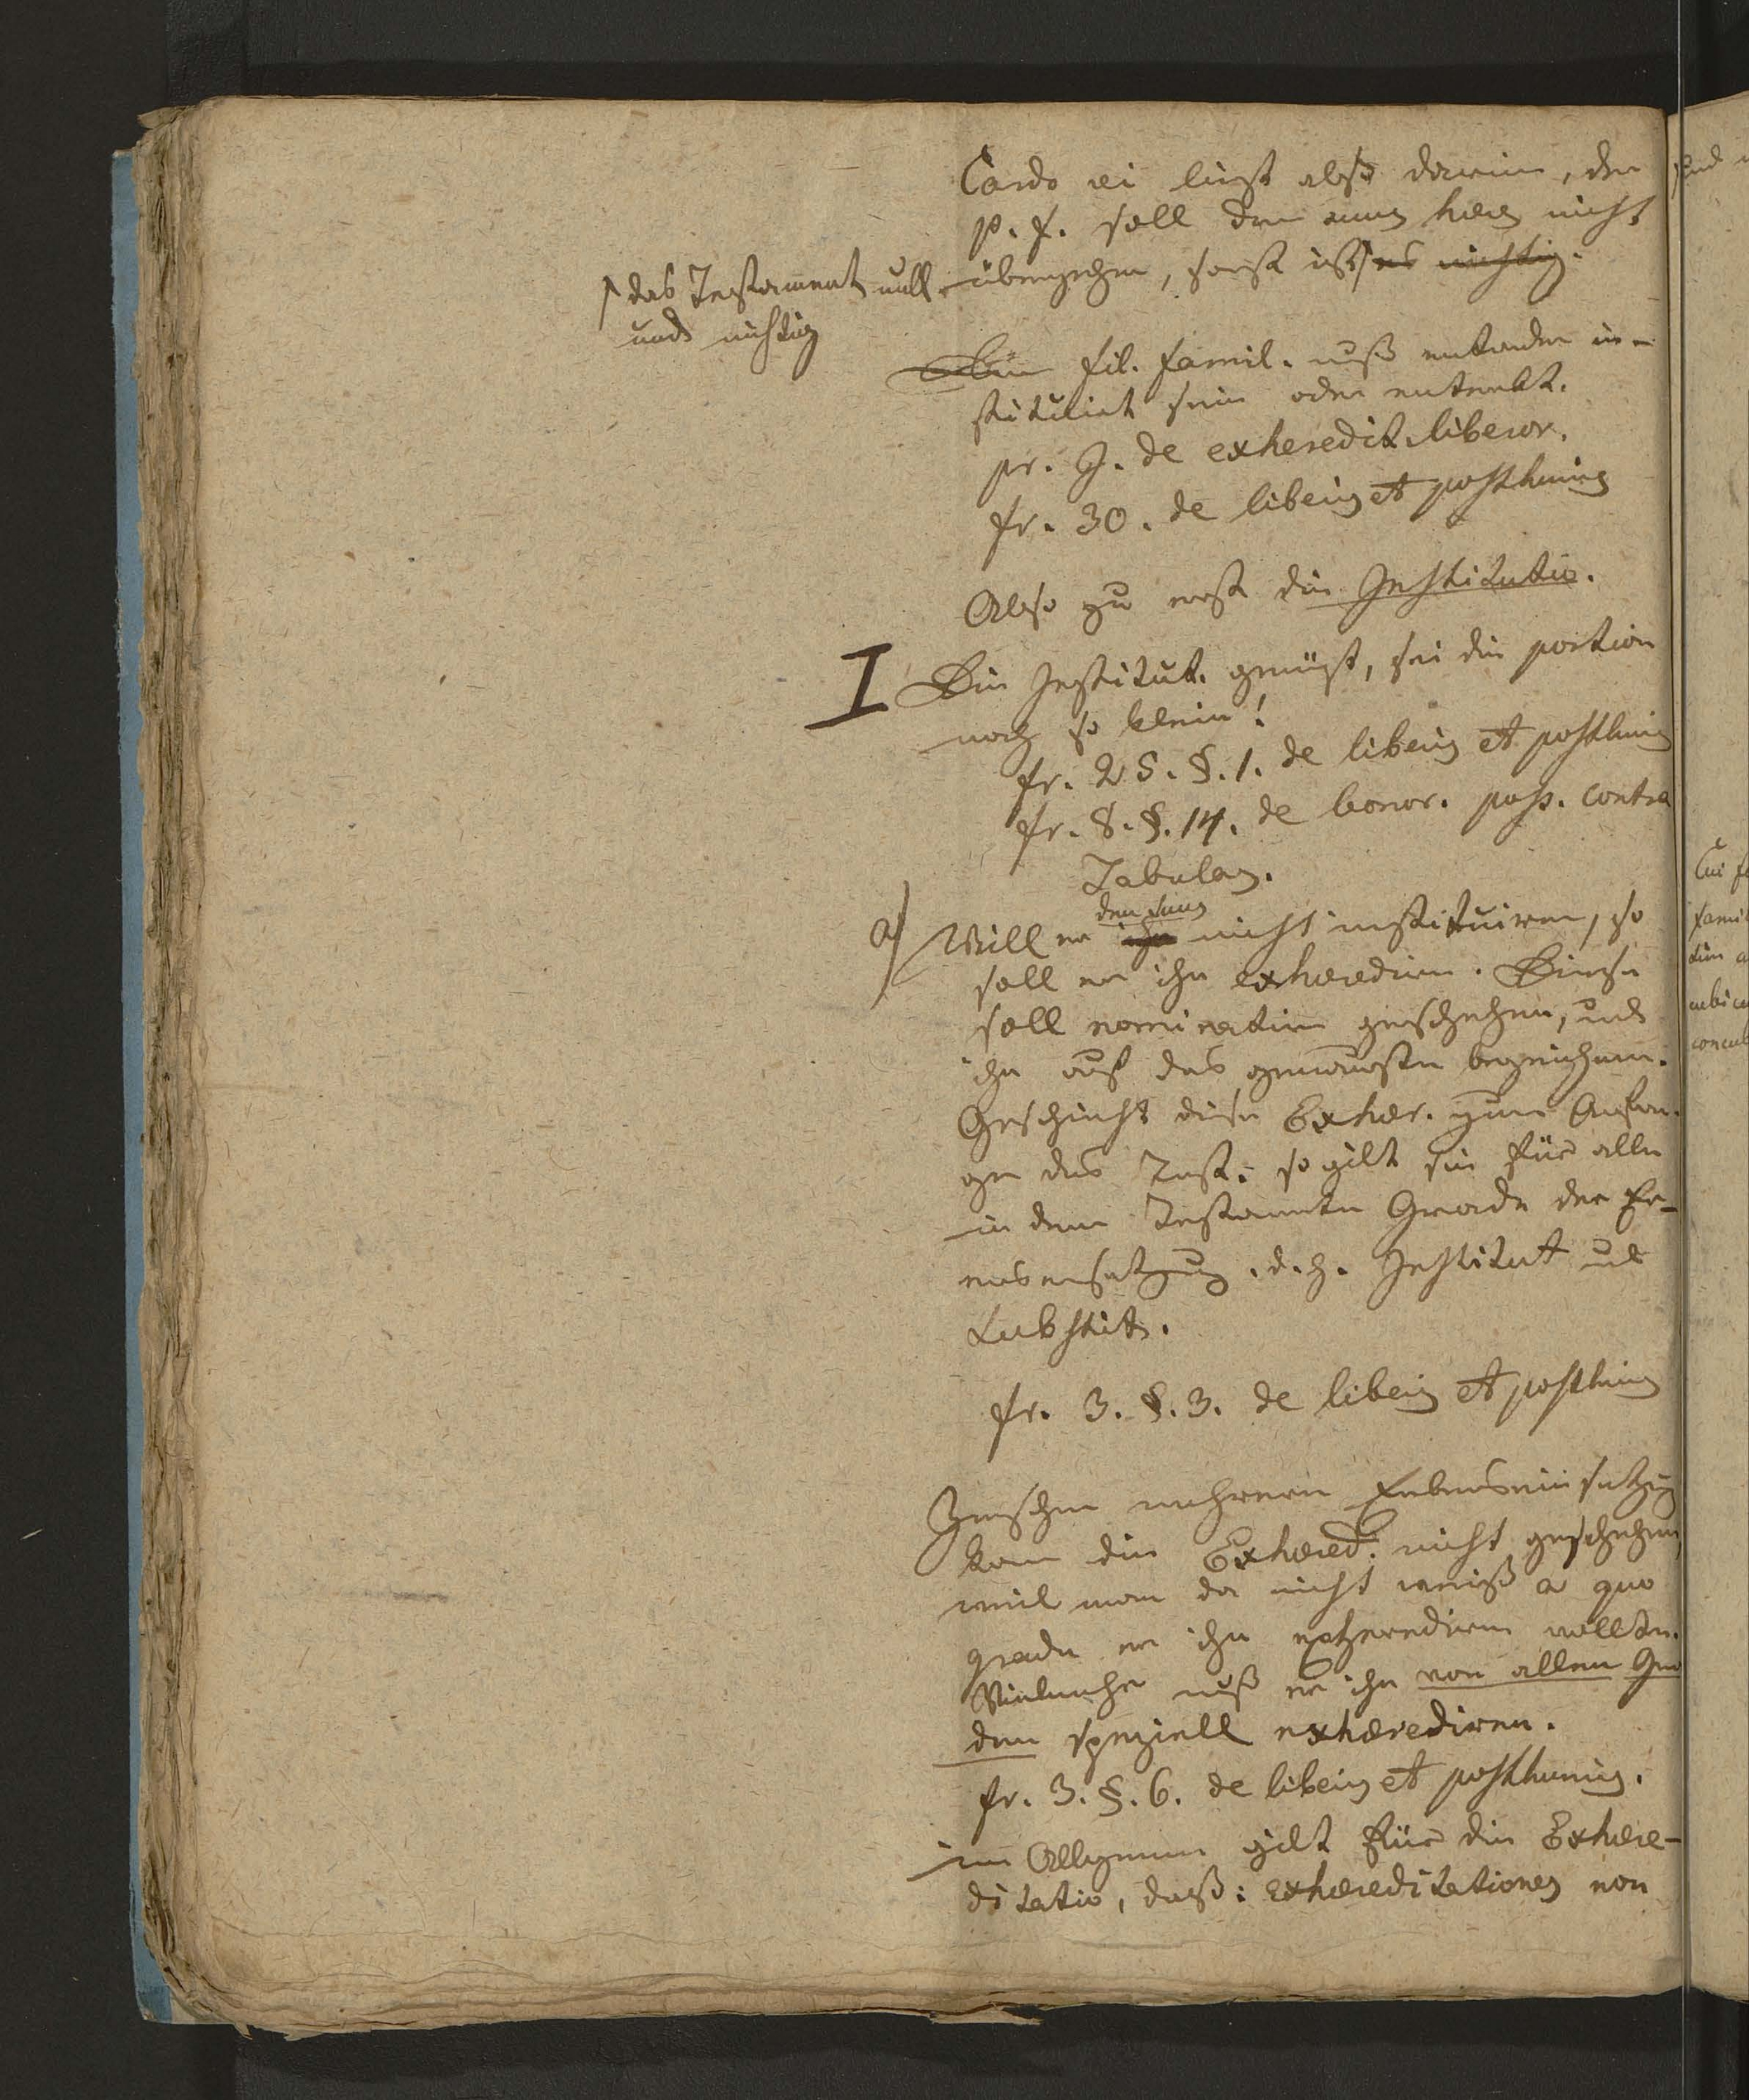 Cardo rei liegt also darin, der
p. f. soll den suus heres nicht
übergehen, sonst ist es nichtig.
das Testament null
und nichtig
Ein fil. famil. muß entweder in-
stituirt sein oder enterbt.
pr. J. de exheredit. liberor.
fr. 30. de liberis et posthumis
Also zu erst die Institutio.
I Die Institut. genügt, sei die portion
noch so klein!
fr. 25. §. 1. de liberis et posthumis
fr. 8. §. 14. de bonor. poss. contra
Tabulas.
den suus
a) Will er ihn nicht instituiren, so
soll er ihn exhærediren. Dieses
soll nominatim geschehen, und
ihn auf das genaueste bezeichnen.
Geschieht diese Exhær. zum Anfan-
ge des Test. so gilt sie für alle
in dem Testamente Grade der Er-
benseinsetzung. d. h. Institut und
Substit.
fr. 3. §. 3. de liberis et posthumis
Zwischen mehrern Erbeseinsetzung
kann die Exhæred. nicht geschehen,
weil man da nicht weiß a quo
gradu er ihn exherediren wollte.
Vielmehr muß er ihn von allen Gra
den speziell exhærediren.
fr. 3. §. 6. de liberis et posthumis.
im Allgemeinen gilt für die Exhære-
ditatio, daß: exhæreditationes non